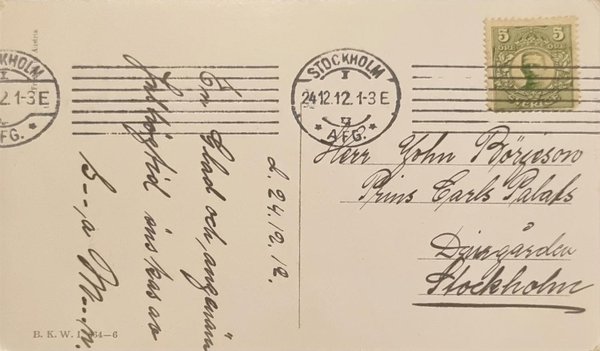 Austria
B. K. W. I. 464–6
d. 24.12.12.
En Glad och angenäm
Julhögtid önskas av
STOCKHOLM
1
24.12.12. 1-3 E
AFG.
KHOLM
12. 1-3 E
FG.
5 5
ÖRE
SVERIGE
Herr John Börjeson
Prins Carls Palats
Djurgården
Stockholm